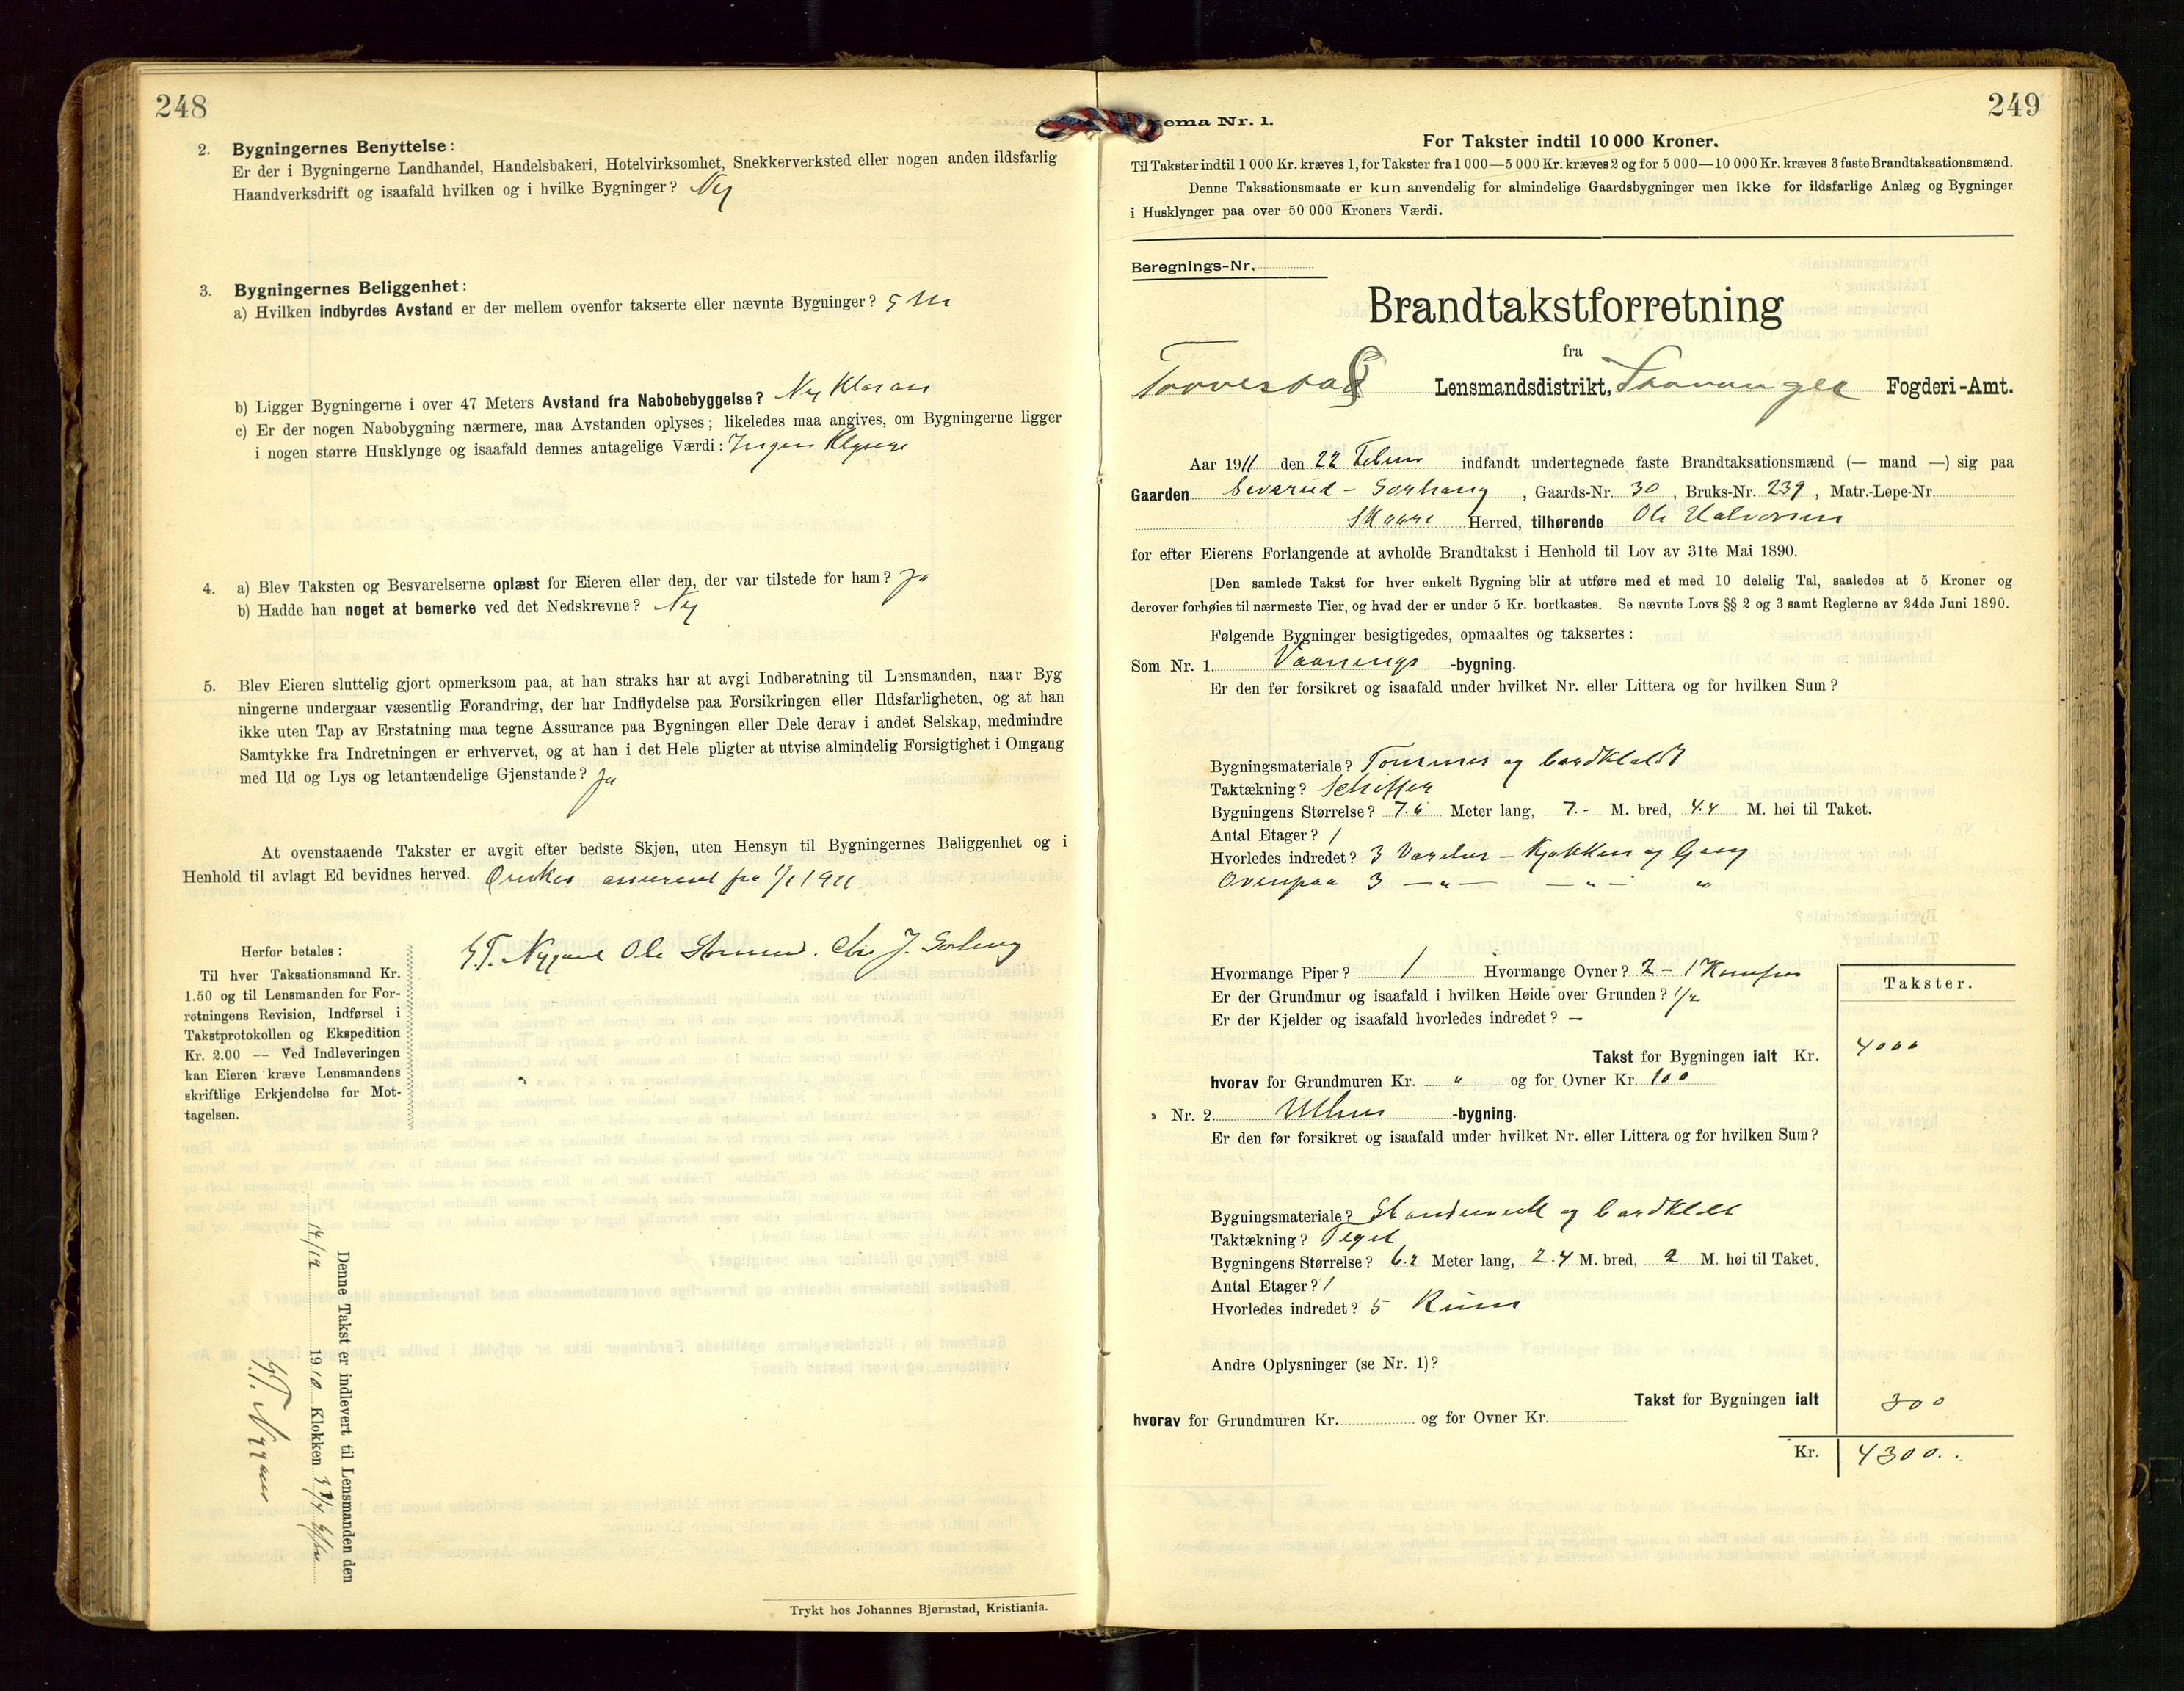 248
2. Bygningernes Benyttelse:
Er der i Bygningerne Landhandel, Handelsbakeri, Hotelvirksomhet, Snekkerverksted eller nogen anden ildsfarlig
Haandverksdrift og isaafald hvilken og i hvilke Bygninger? Nej
3. Bygningernes Beliggenhet:
a) Hvilken indbyrdes Avstand er der mellem ovenfor takserte eller nævnte Bygninger? 5 m
b) Ligger Bygningerne i over 47 Meters Avstand fra Nabobebyggelse? Nej
c) Er der nogen Nabobygning nærmere, maa Avstanden oplyses; likeledes maa angives, om Bygningerne ligger
i nogen større Husklynge og isaafald dennes antagelige Værdi: Ingen Klynge
4. a) Blev Taksten og Besvarelserne oplæst for Eieren eller den, der var tilstede for ham? Ja
b) Hadde han noget at bemerke ved det Nedskrevne? Nej
5. Blev Eieren sluttelig gjort opmerksom paa, at han straks har at avgi Indberetning til Lensmanden, naar Byg
ningerne undergaar væsentlig Forandring, der har Indflydelse paa Forsikringen eller Ildsfarligheten, og at han
ikke uten Tap av Erstatning maa tegne Assurance paa Bygningen eller Dele derav i andet Selskap, medmindre
Samtykke fra Indretningen er erhvervet, og at han i det Hele pligter at utvise almindelig Forsigtighet i Omgang
med Ild og Lys og letantændelige Gjenstande? Ja
At ovenstaaende Takster er avgit efter bedste Skjøn, uten Hensyn til Bygningernes Beliggenhet og i
Henhold til avlagt Ed bevidnes herved. Ønskes assureret fra 1/1 1911
Herfor betales:
Til hver Taksationsmand Kr.
1.50 og til Lensmanden for For-
retningens Revision, Indførsel i
Takstprotokollen og Ekspedition
Kr. 2.00 — Ved Indleveringen
kan Eieren kræve Lensmandens
skriftlige Erkjendelse for Mot-
tagelsen.
Nygaard Ole J.
Denne Takst er indlevert til Lensmanden den
14/12 1910 Klokken
Nygaard
Trykt hos Johannes Bjørnstad, Kristiania.
249
ema Nr. 1.
For Takster indtil 10 000 Kroner.
Til Takster indtil 1 000 Kr. kræves 1, for Takster fra 1 000—5 000 Kr. kræves 2 og for 5 000—10 000 Kr. kræves 3 faste Brandtaksationsmænd.
Denne Taksationsmaate er kun anvendelig for almindelige Gaardsbygninger men ikke for ildsfarlige Anlæg og Bygninger
i Husklynger paa over 50 000 Kroners Værdi.
Beregnings-Nr.
Brandtakstforretning
fra
Torvestad Lensmandsdistrikt, Stavanger Fogderi-Amt.
Aar 1911 den 22 Febru indfandt undertegnede faste Brandtaksationsmænd (— mand —) sig paa
Gaarden Sørhaug, Gaards-Nr. 30, Bruks-Nr. 239, Matr.-Løpe-Nr.
Skaare Herred, tilhørende Ole Halvorsen
for efter Eierens Forlangende at avholde Brandtakst i Henhold til Lov av 31te Mai 1890.
[Den samlede Takst for hver enkelt Bygning blir at utføre med et med 10 delelig Tal, saaledes at 5 Kroner og
derover forhøies til nærmeste Tier, og hvad der er under 5 Kr. bortkastes. Se nævnte Lovs §§ 2 og 3 samt Reglerne av 24de Juni 1890.
Følgende Bygninger besigtigedes, opmaaltes og taksertes:
Som Nr. 1. Vaanings -bygning.
Er den før forsikret og isaafald under hvilket Nr. eller Littera og for hvilken Sum?
Bygningsmateriale? Tømmer og bordklædt
Taktækning? Schiffer
Bygningens Størrelse? 7.6 Meter lang, 7.- M. bred, 4.4 M. høi til Taket.
Antal Etager? 1
Hvorledes indredet? 3 Værelser - Kjøkken og Gang
Ovenpaa 3 — " — — " — "
Hvormange Piper? 1 Hvormange Ovner? 2 - 1 Komfur
Er der Grundmur og isaafald i hvilken Høide over Grunden? 1/2
Er der Kjelder og isaafald hvorledes indredet? —
Takster.
Takst for Bygningen ialt Kr. 4000
hvorav for Grundmuren Kr. " og for Ovner Kr. 100
» Nr. 2. Uthus -bygning.
Er den før forsikret og isaafald under hvilket Nr. eller Littera og for hvilken Sum?
Bygningsmateriale? Standerverk og bordklædt
Taktækning? Tegel
Bygningens Størrelse? 6.2 Meter lang, 2.4 M. bred, 2 M. høi til Taket.
Antal Etager? 1
Hvorledes indredet? 5 Rum
Andre Oplysninger (se Nr. 1)?
Takst for Bygningen ialt 300
hvorav for Grundmuren Kr. og for Ovner Kr.
Kr. 4300.